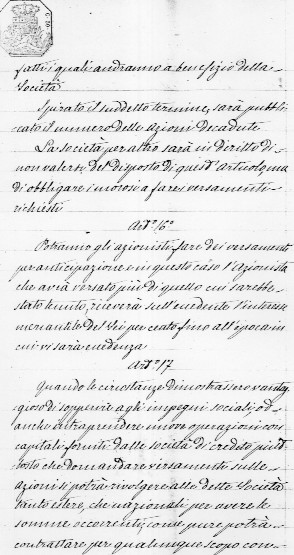 fatti, i quali andranno a benefizio della
Società
Spirato il suddetto termine, sarà pubbli
cato il numero delle azioni decadute
La società per altro sarà in diritto di
non valersi del disposto di quest'Articolo, ma
di obbligare i morosi a fare i versamenti
richiesti
Art.º 16º
Potranno gli azionisti fare dei versamenti
per anticipazione e in questo caso l'Azionista
che avrà versato più di quello cui sarebbe
stato tenuto, riceverà sull'excedente l'interesse
mercantile del Sei per cento fino all'epoca in
cui vi sarà excedenza
Art.º 17
Quando le circostanze dimostrassero vantag
gioso di sopperire agli impegni sociali, od
anche intraprendere nuove operazioni con
capitali forniti dalle società di credito piut
tosto che domandare versamenti sulle
azioni si potrà rivolgere alle dette Società
tanto estere, che nazionali per avere le
somme occorrenti; come pure potrà
contrattare per qualunque scopo con